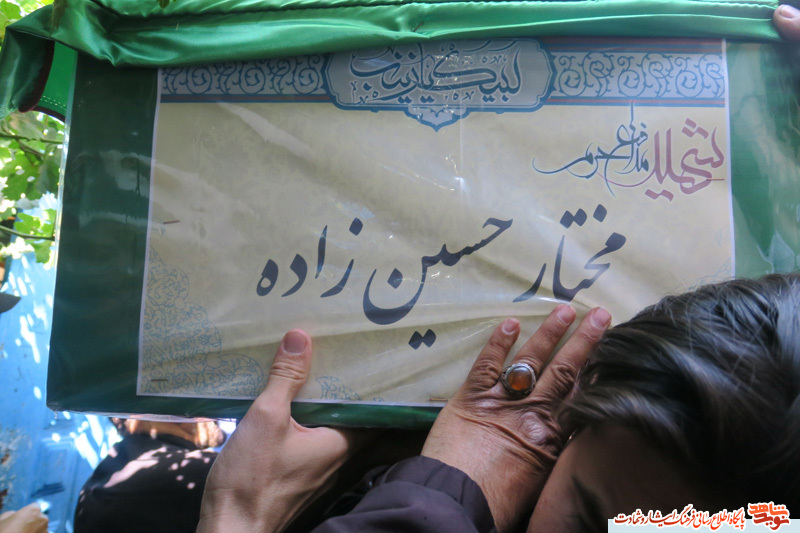 لبیک یا زینب
شهید مدافع حرم
مختار حسین زاده
نوید شاهد
پایگاه اطلاع رسانی فرهنگ ایثار و شهادت